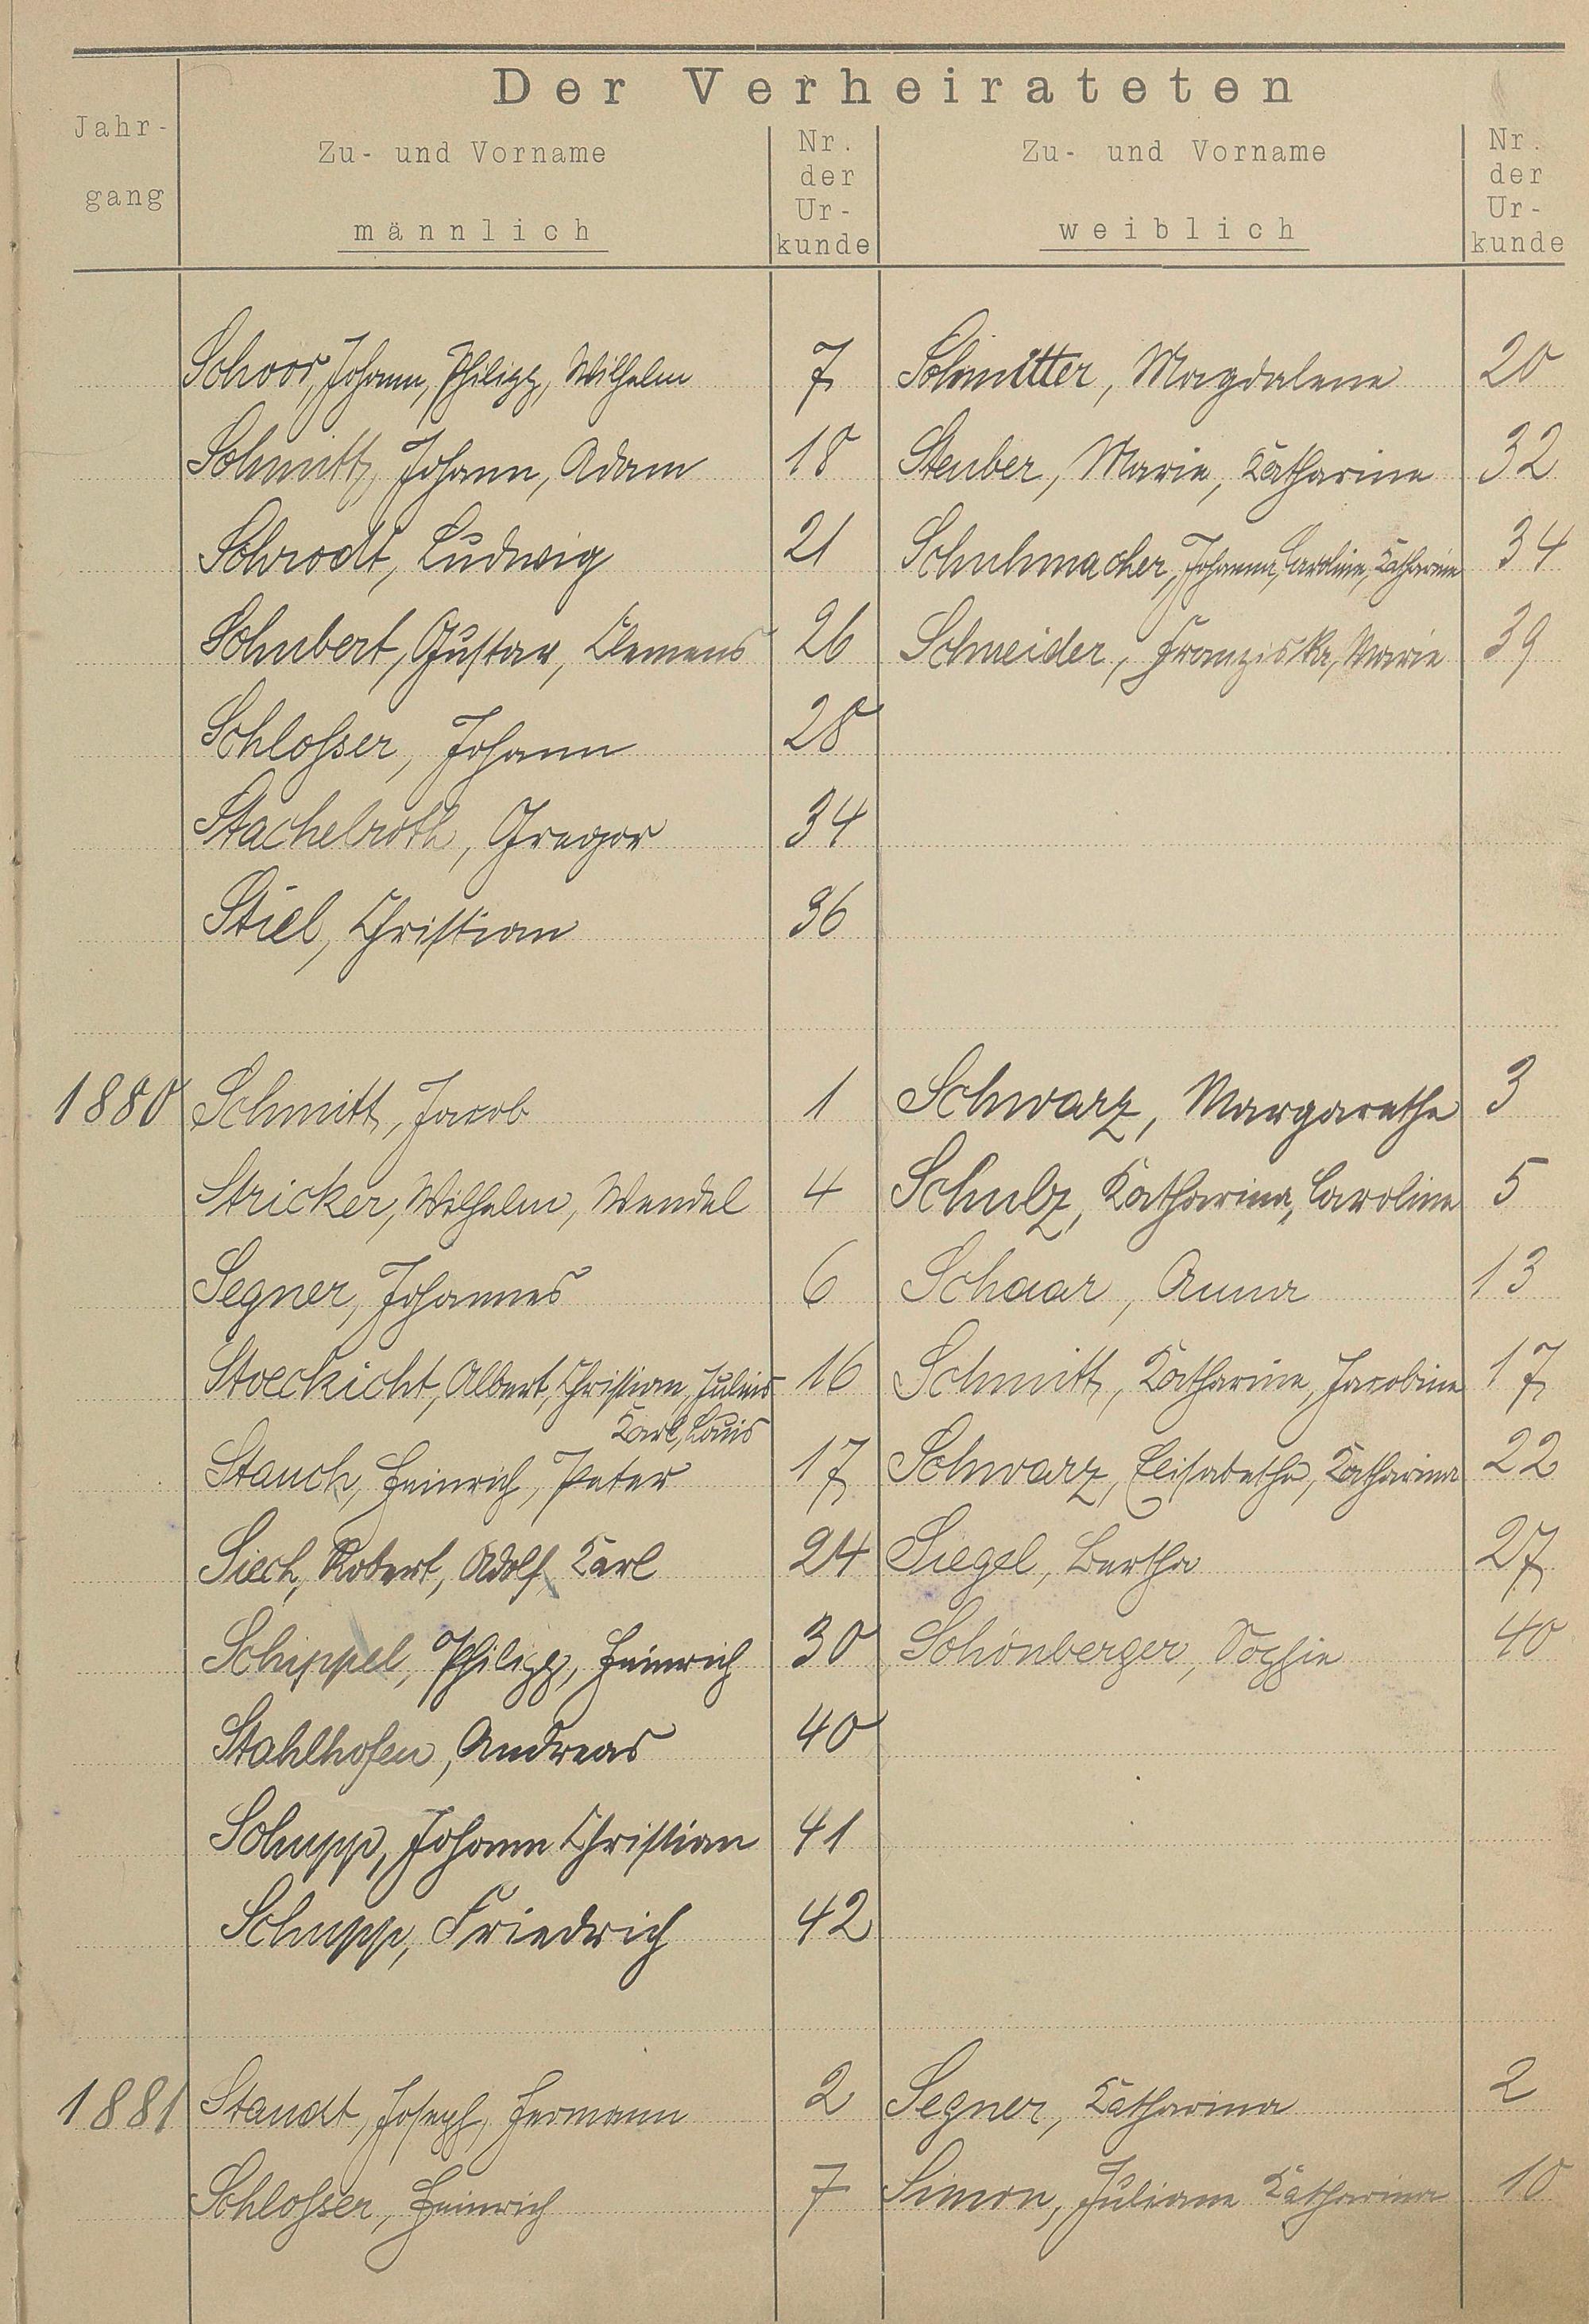 Der Verheirateten
Jahr-
gang
Zu- und Vorname
männlich
Nr.
der
Ur-
kunde
Zu- und Vorname
weiblich
Nr.
der
Ur-
kunde
Schoor, Johann, Philipp, Wilhelm 7 Schmitter, Magdalene 20
Schmitt, Johann, Adam 18 Steuber, Marie, Katharine 32
Schrodt, Ludwig 21 Schuhmacher, Johanna, Caroline, Katharine 34
Schubert, Gustav, Clemens 26 Schneider, Franziska, Marie 39
Schlosser, Johann 28
Stachelroth, Gregor 34
Stiel, Christian 36
1880 Schmitt, Jacob 1 Schwarz, Margarethe 3
Stricker, Wilhelm, Wendel 4 Schulz, Katharina, Caroline 5
Segner, Johannes 6 Schaar, Anna 13
Stoeckicht, Albert, Christian, Julius 16 Schmitt, Katharine, Jacobine 17
Karl, Louis
Stauch, Heinrich, Peter 17 Schwarz, Elisabetha, Katharina 22
Siech, Robert, Adolf, Karl 24 Siegel, Bertha 27
Schippel, Philipp, Heinrich 30 Schönberger, Sophie 40
Stahlhofen, Andreas 40
Schupp, Johann Christian 41
Schupp, Friedrich 42
1881 Staudt, Joseph, Hermann 2 Segner, Katharina 2
Schlosser, Heinrich 7 Simon, Juliane Katharina 10